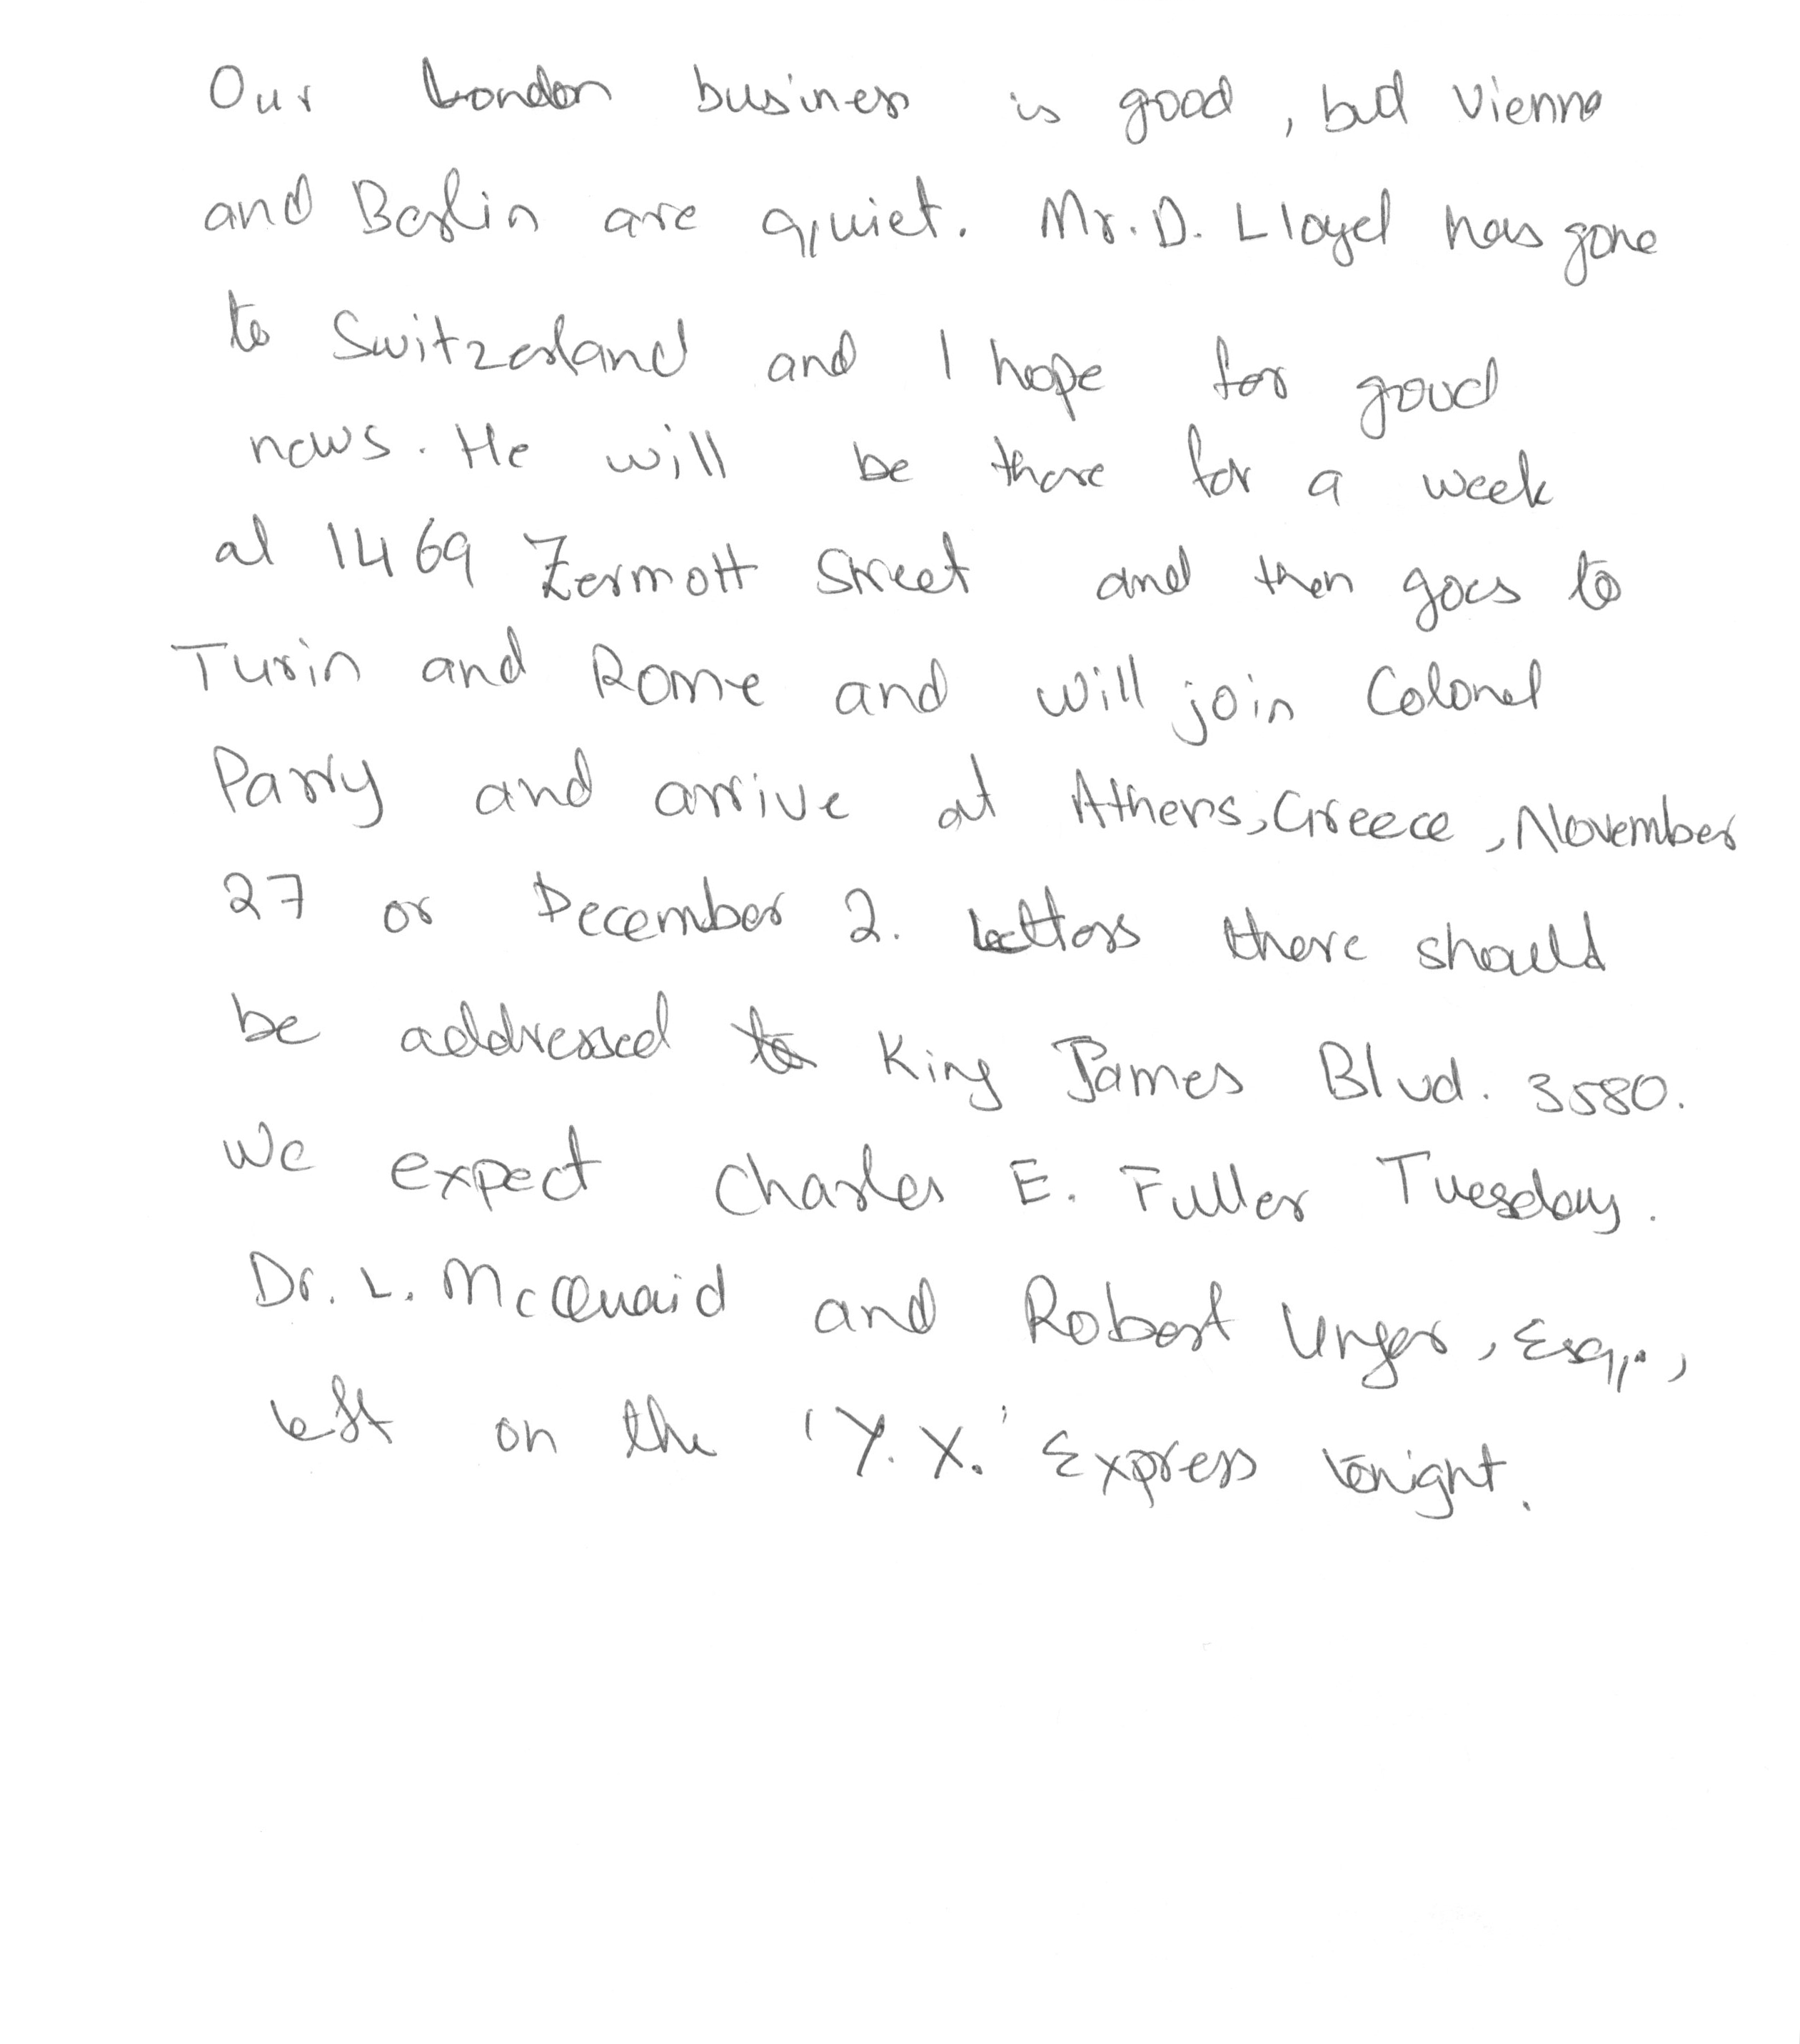 Our London business is good, but Vienna
and Berlin are quiet. Mr. D. Lloyd has gone
to Switzerland and I hope for good
news. He will be there for a week
at 1469 Zermott Street and then goes to
Turin and Rome and will join Colonel
Parry and arrive at Athens, Greece, November
27 or December 2. Letters there should
be addressed to King James Blvd. 3580.
We expect Charles E. Fuller Tuesday.
Dr. L. McQuaid and Robert Unger, Esq.,
left on the 'Y.X.' Express tonight.